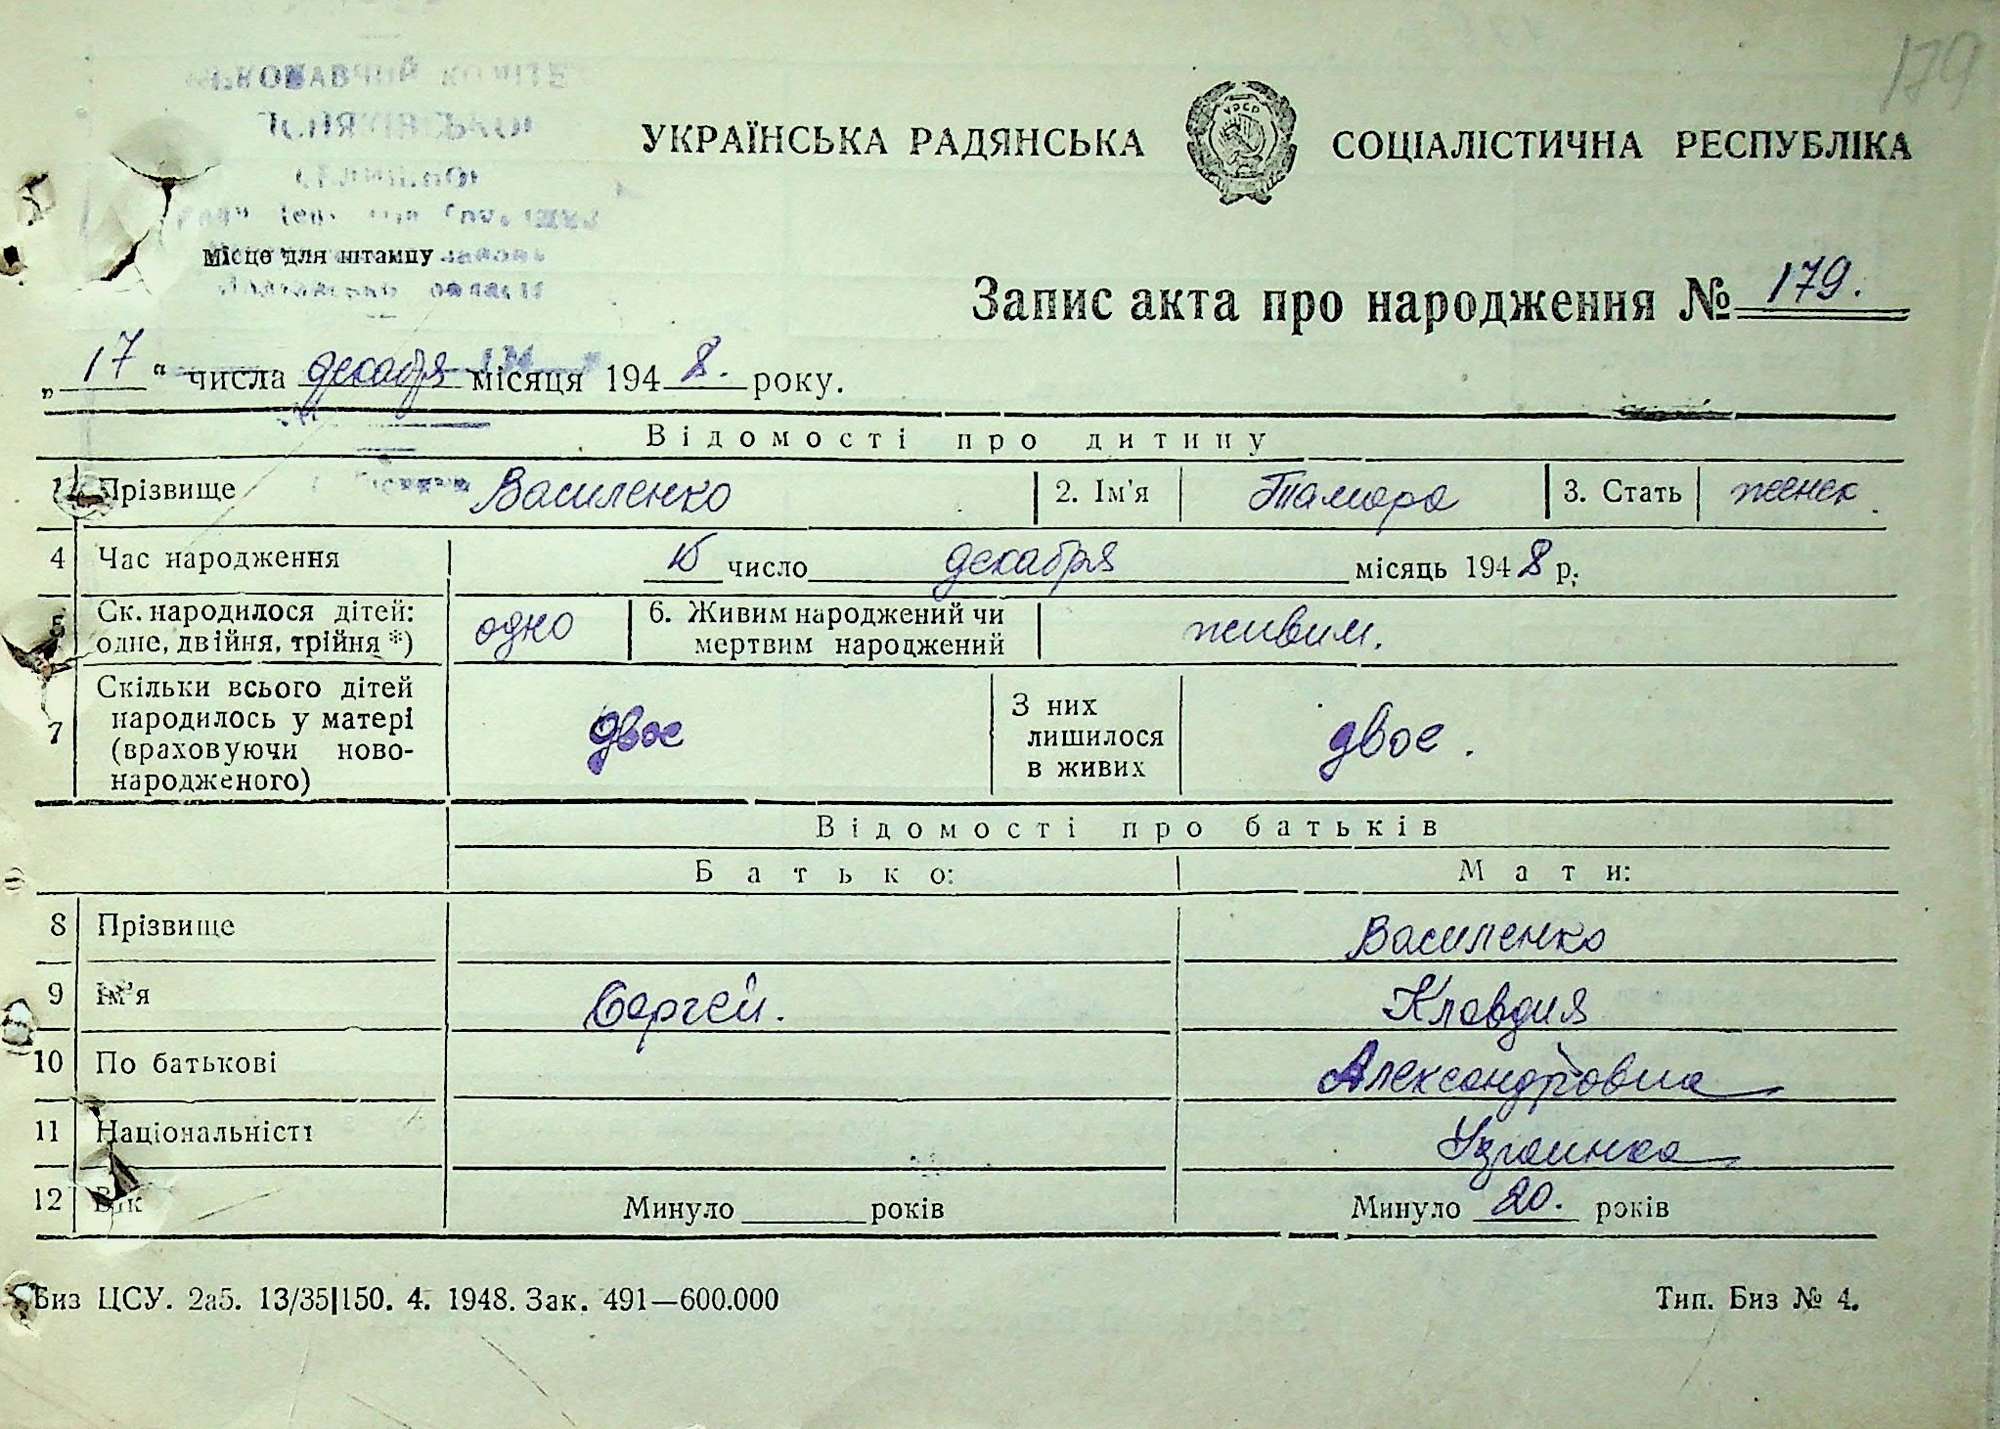 179
УКРАЇНСЬКА РАДЯНСЬКА СОЦІАЛІСТИЧНА РЕСПУБЛІКА
УРСР
Місце для штампу
Запис акта про народження № 179.
„17“ числа декабря місяця 1948. року.
Відомості про дитину
1 Прізвище Василенко 2. Ім'я Тамара 3. Стать женск.
4 Час народження число декабря місяць 1948 р.
5 Ск. народилося дітей: одне, двійня, трійня *) одно 6. Живим народжений чи мертвим народжений живим.
7 Скільки всього дітей народилось у матері (враховуючи новонародженого) двое З них лишилося в живих двое.
Відомості про батьків
Батько: Мати:
8 Прізвище Василенко
9 Ім'я Сергей. Клавдия
10 По батькові Александровна
11 Національність Украинка
12 Вік Минуло ____ років Минуло 20. років
Биз ЦСУ. 2а5. 13/35|150. 4. 1948. Зак. 491—600.000 Тип. Биз № 4.